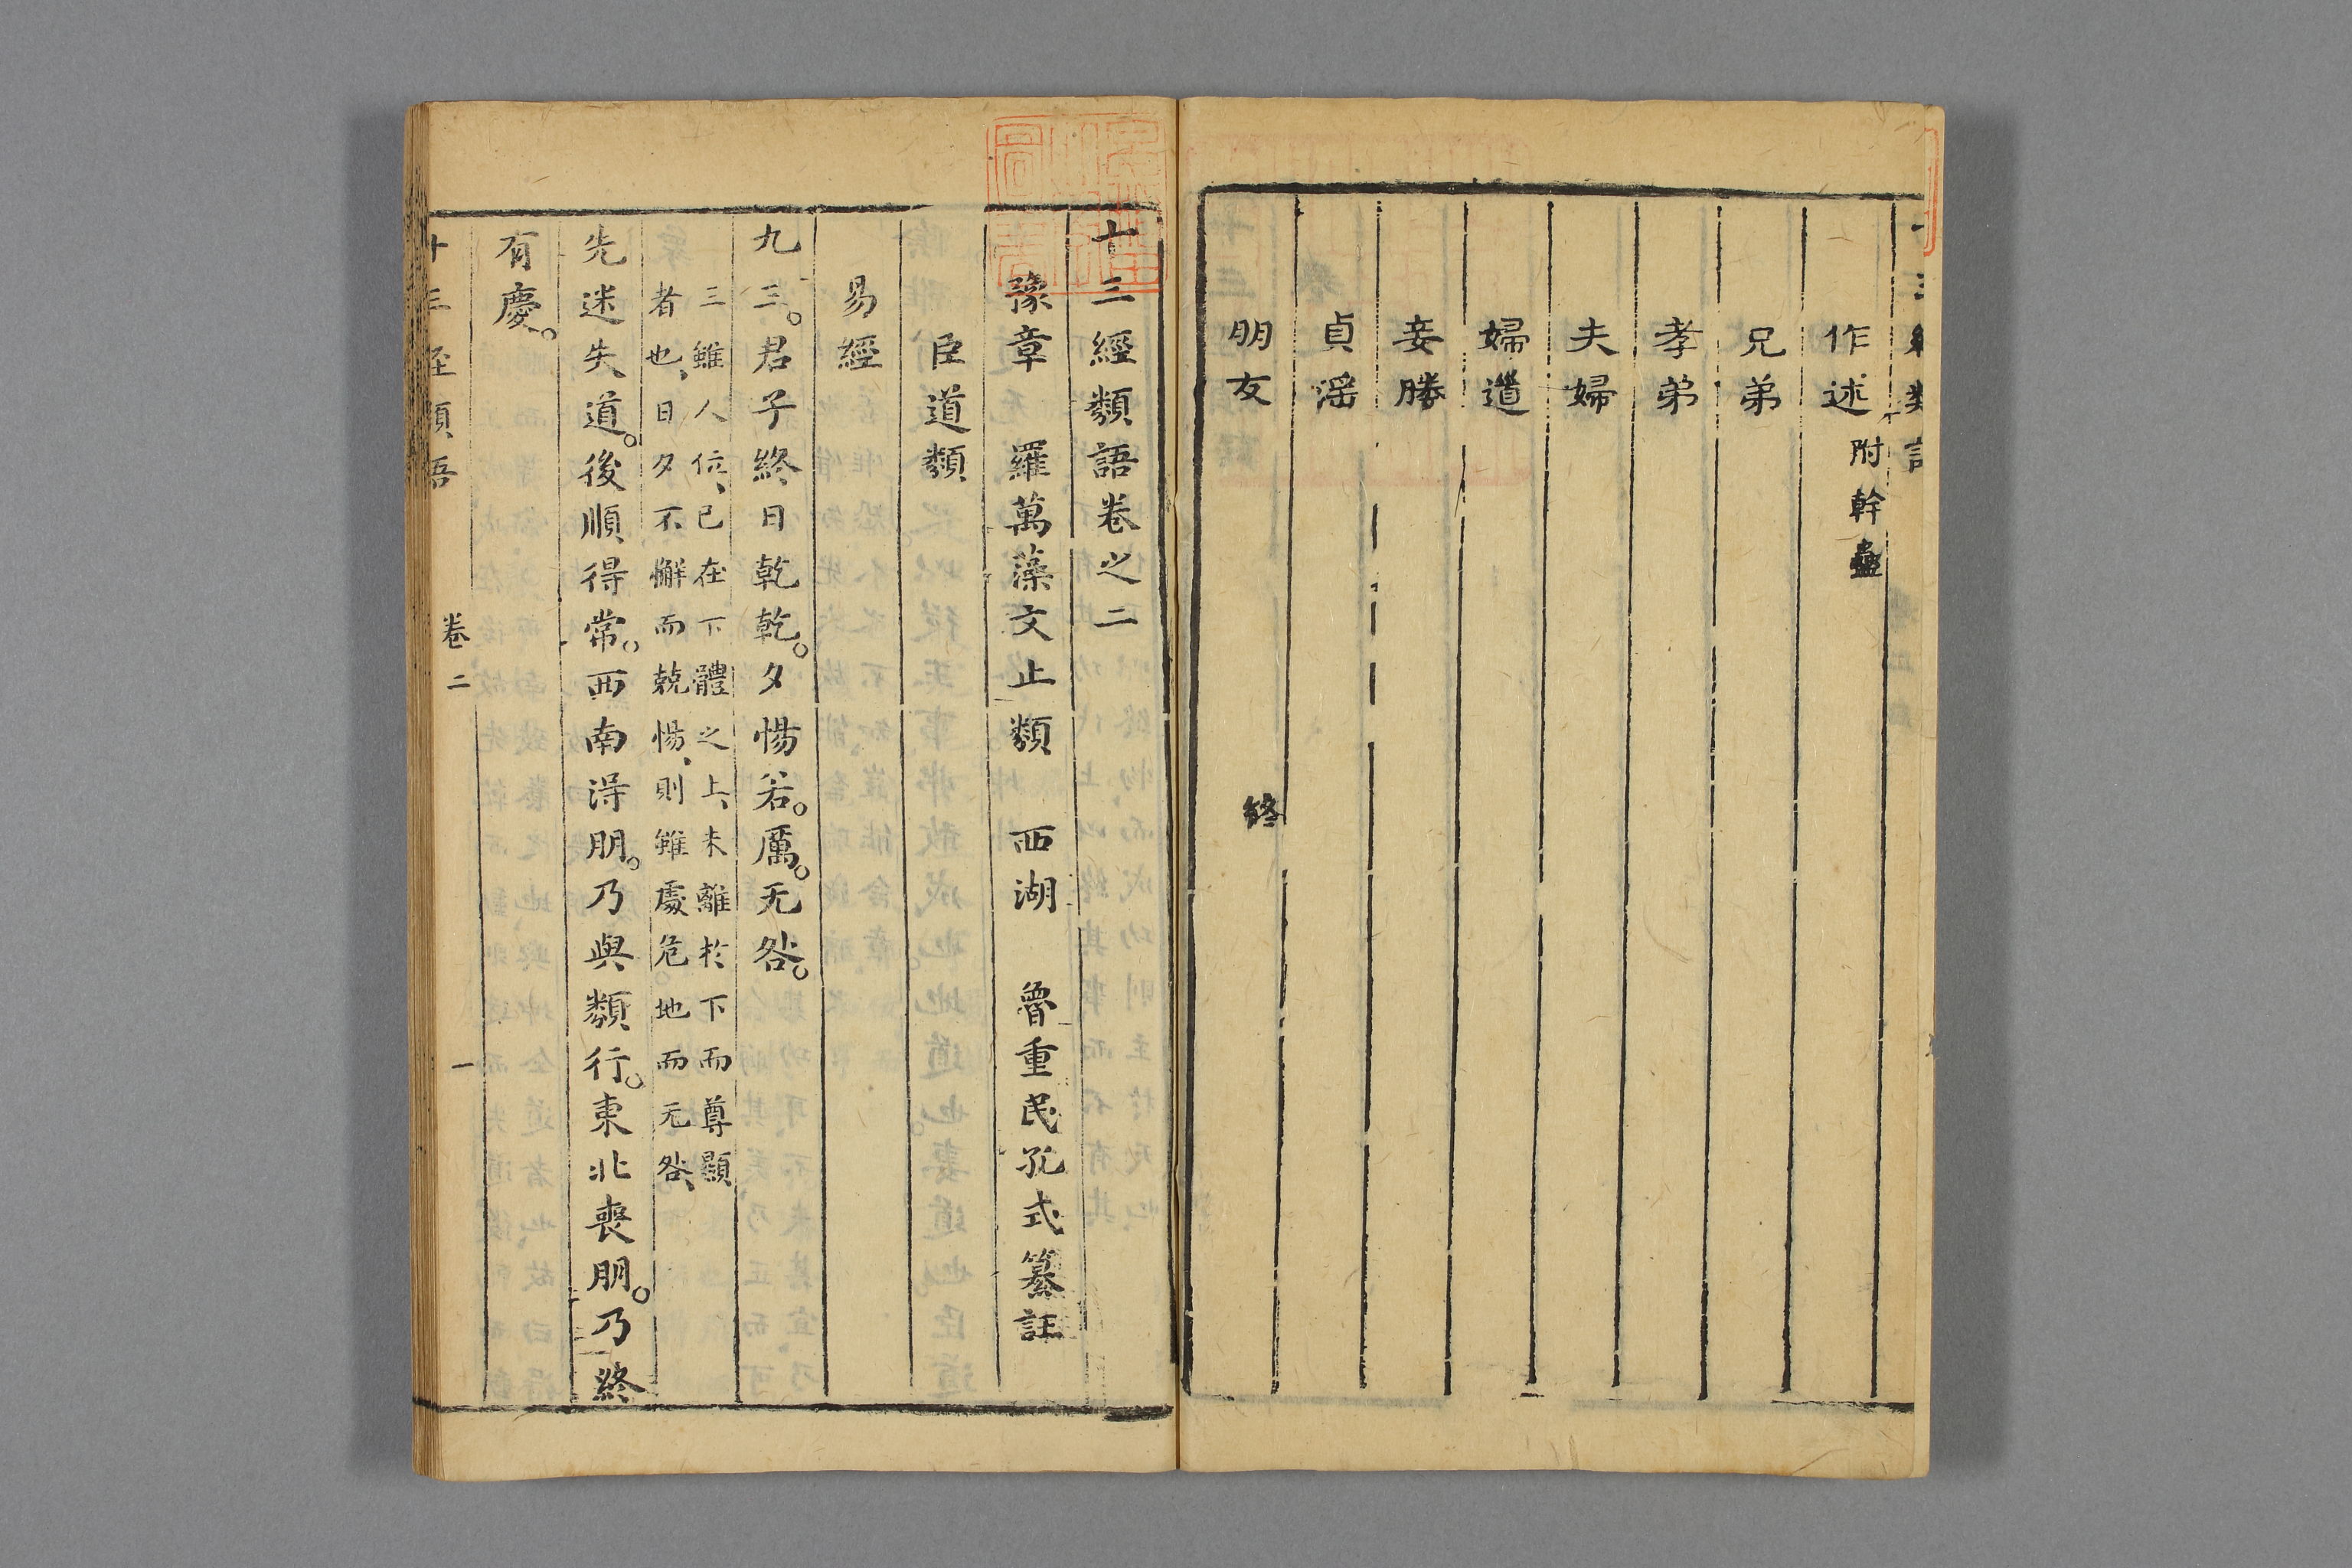 作述附幹蠱
兄弟
孝弟
夫婦
婦道
妾勝
貞滛
朋友 終
十三經類語卷之二
豫章 羅萬藻文止類 西湖 魯重民孔式纂註
臣道類
易經
九三。君子終日乾乾。夕惕若。厲。无咎。
三雖人位、已在下體之上、未離於下而尊顯
者也、日夕不懈而兢惕、則雖處危地而无咎、
先迷失道。後順得常。西南得朋。乃與類行。東北喪朋。乃終
有慶。
十三經類語 卷二 一